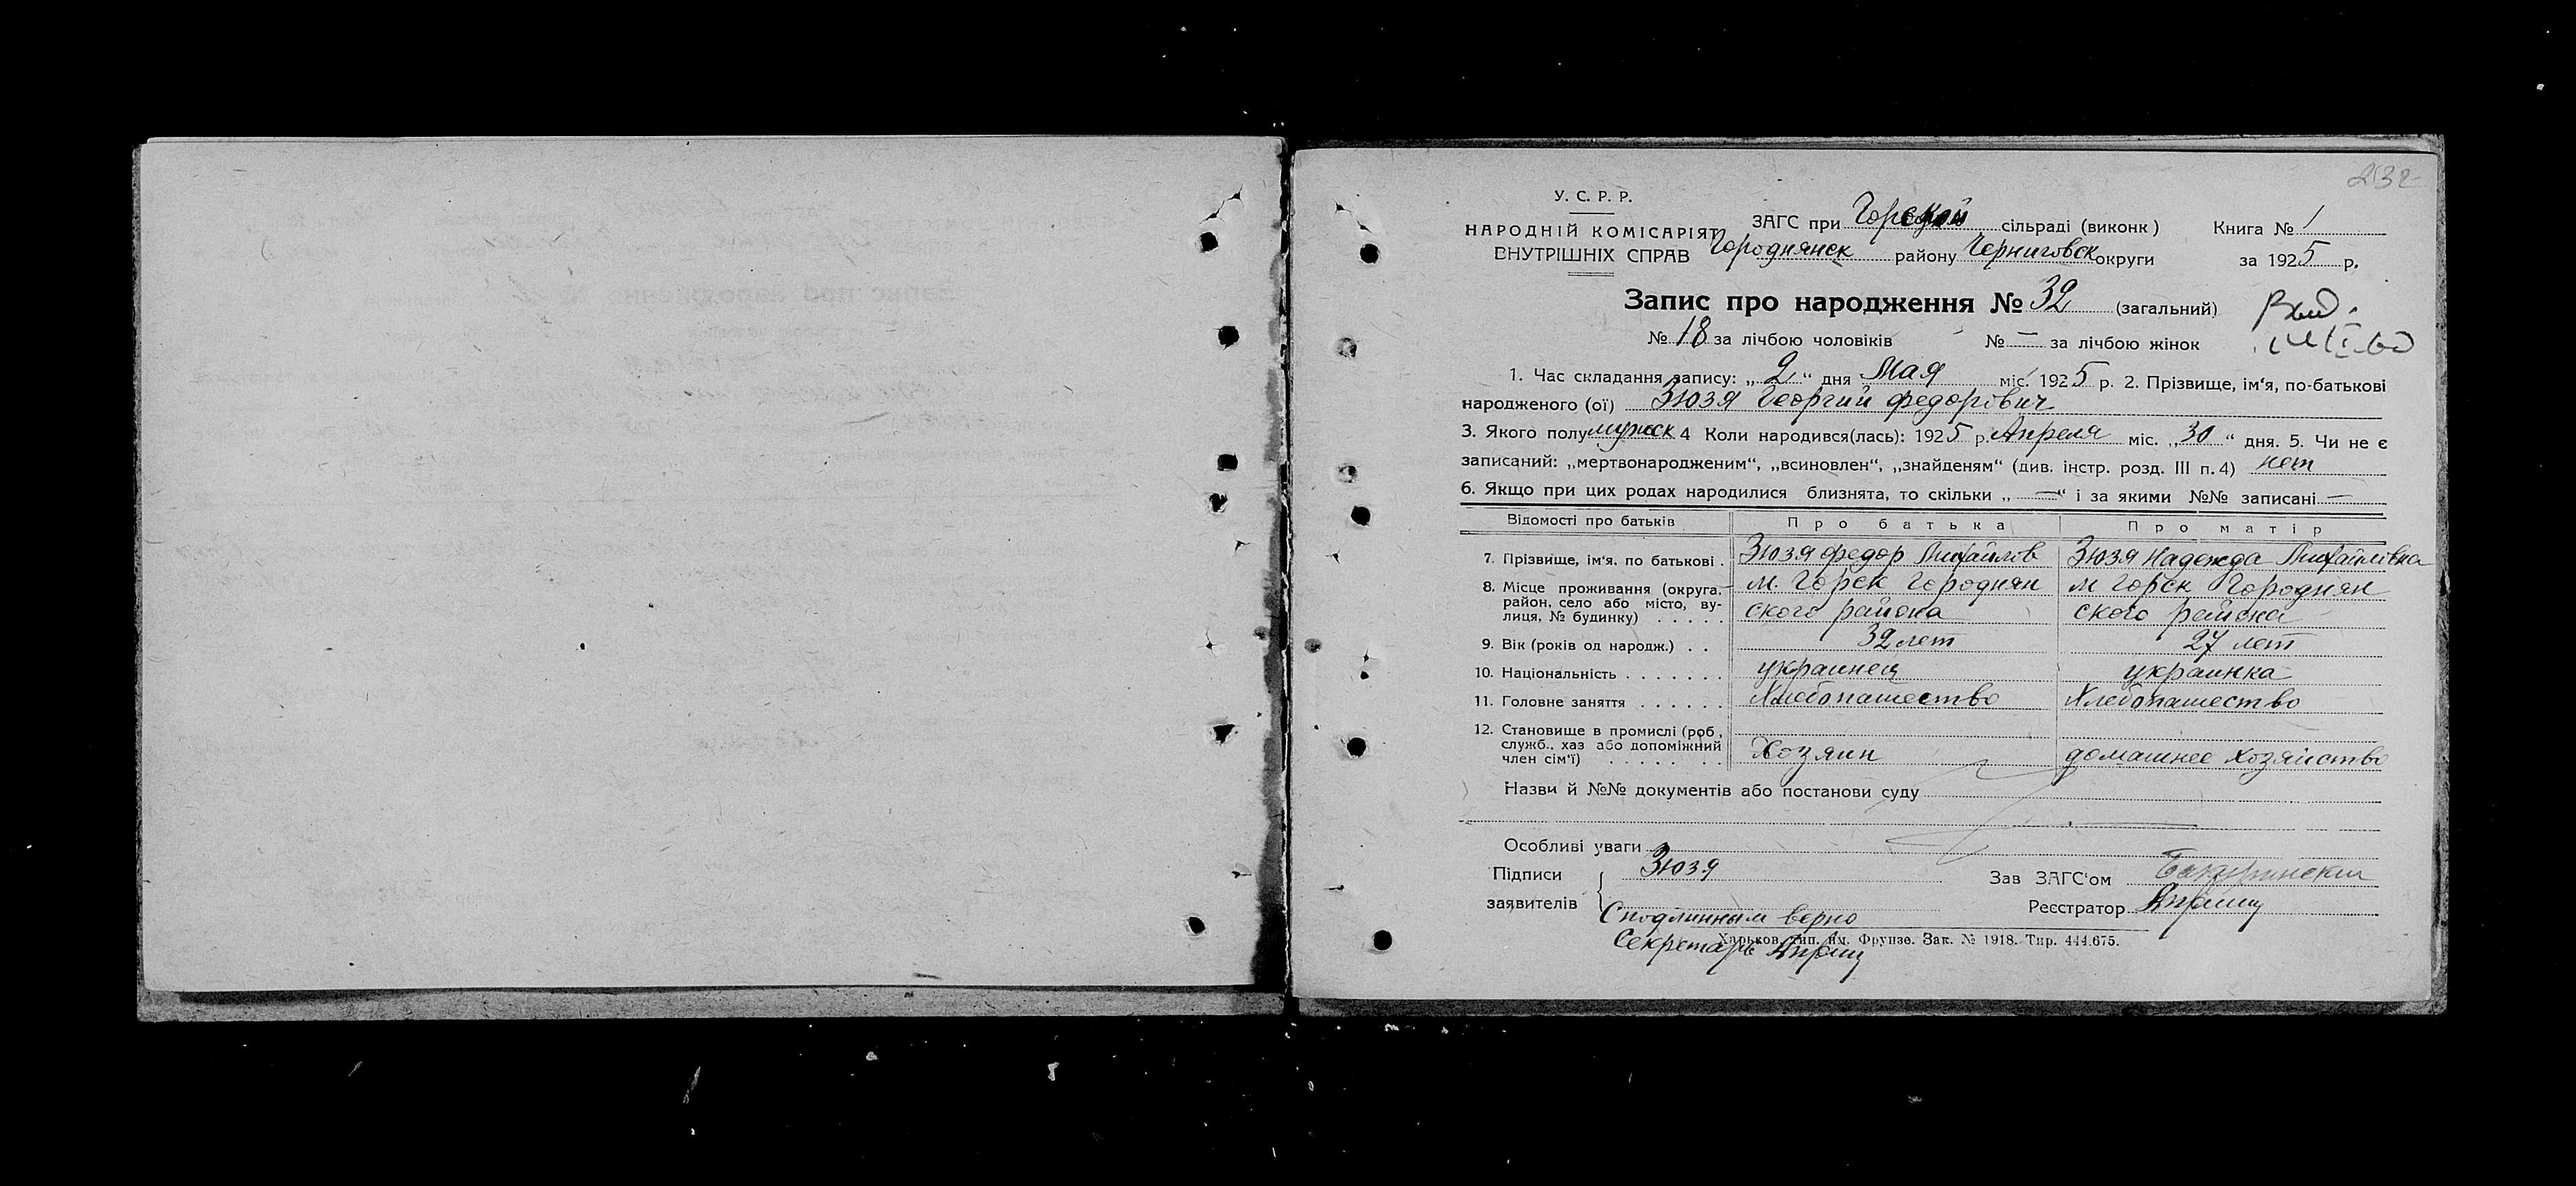 232
У. С. Р. Р.
НАРОДНІЙ КОМІСАРІЯТ
ВНУТРІШНІХ СПРАВ
ЗАГС при Горской сільраді (виконк)
Книга № 1
Городнянск району Черниговск округи
за 1925 р.
Запис про народження № 32 (загальний)
№ 18 за лічбою чоловіків № — за лічбою жінок
1. Час складання запису: „ 2 “ дня Мая міс. 1925 р. 2. Прізвище, ім‘я, по-батькові
народженого (ої) Зюзя Георгий Федорович
3. Якого полу мужск 4 Коли народився(лась): 1925 р. Апреля міс. „ 30 “ дня. 5. Чи не є
записаний: „мертвонародженим“, „всиновлен“, „знайденям“ (див. інстр. розд. III п. 4) нет
6. Якщо при цих родах народилися близнята, то скільки „ — “ і за якими №№ записані —
Відомості про батьків Про батька Про матір
7. Прізвище, ім‘я, по батькові . Зюзя Федор Михайлов Зюзя Надежда Михайлівна
8. Місце проживання (округа, район, село або місто, ву-лиця, № будинку) . . . . .
м. Горск Городнян м Горск Городнян
ского района ского района
9. Вік (років од народж.) . . 32 лет 27 лет
10. Національність . . . . . . . украинец украинка
11. Головне заняття . . . . . . Хлебопашество Хлебопашество
12. Становище в промислі (роб, служб., хаз або допоміжний член сім‘ї) . . . . . . .
Хозяин домашнее хозяйство
Назви й №№ документів або постанови суду
Особливі уваги
Підписи
заявителів
Зюзя
Зав ЗАГС‘ом
Реєстратор
С подлинным верно
Секретарь
Харьков, тип. им. Фрунзе. Зак. № 1918. Тир. 444.675.